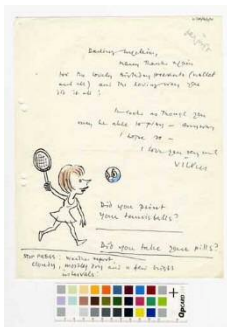 Darling
Many thanks again
for the lovely birthday presents (wallet
and all) and the loving way you
did it all!
It looks as though you
may be able to play — anyway
I hope so —
I love you very much
Did you paint
your tennis balls?
Did you take your pills?
weather report
cloudy, mostly dry and a few bright
intervals